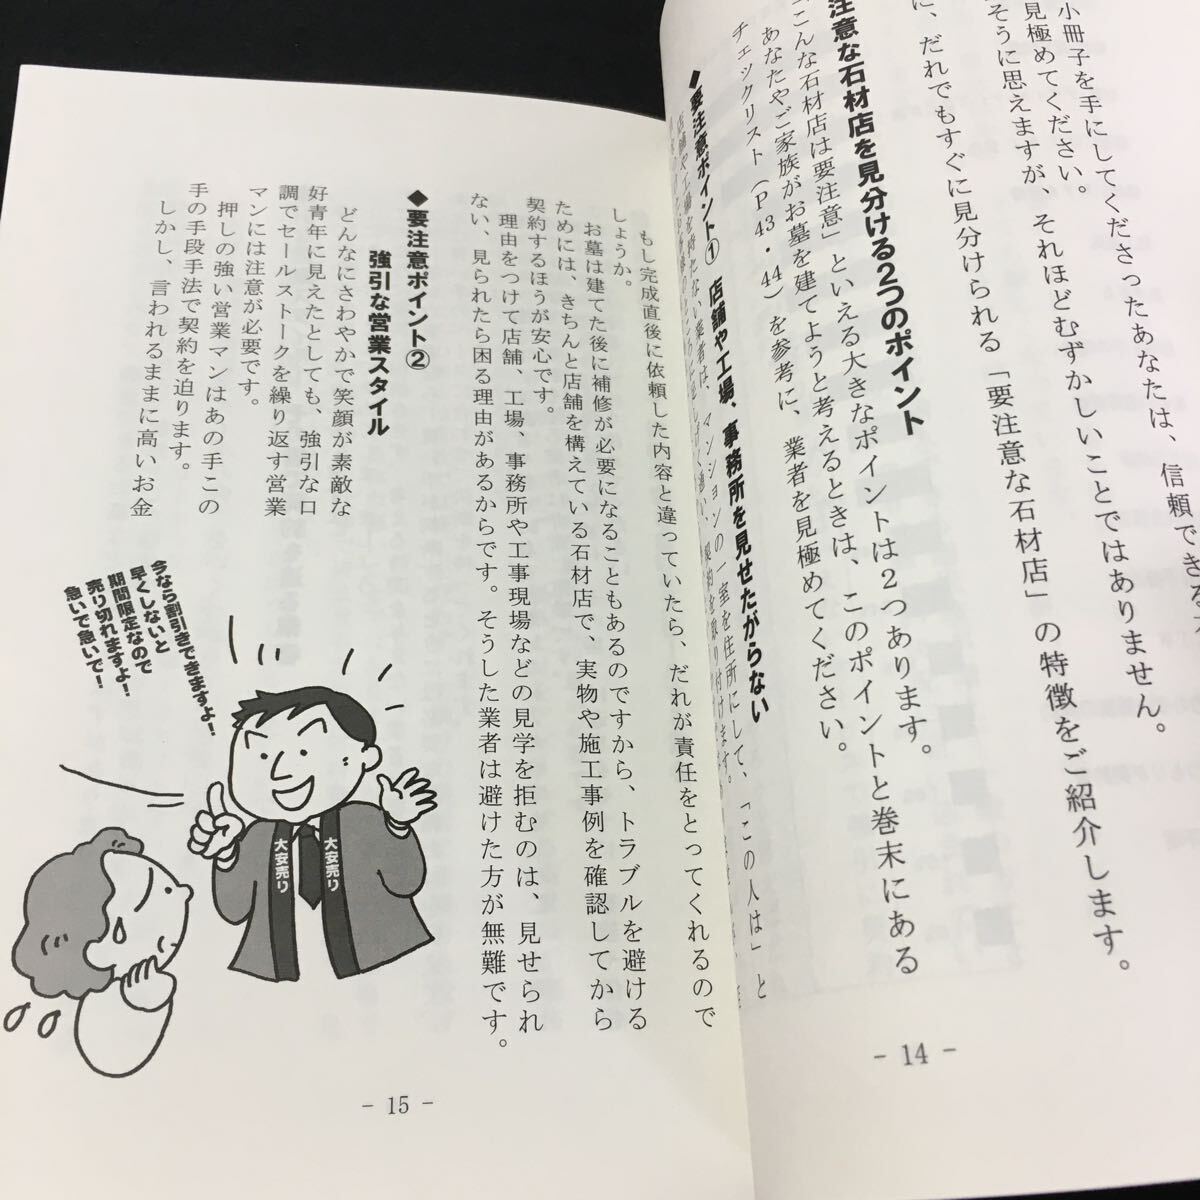 小冊子を手にしてくださったあなたは、信頼できる
見極めてください。
そうに思えますが、それほどむずかしいことではありません。
に、だれでもすぐに見分けられる「要注意な石材店」の特徴をご紹介します。
注意な石材店を見分ける2つのポイント
「こんな石材店は要注意」といえる大きなポイントは2つあります。
あなたやご家族がお墓を建てようと考えるときは、このポイントと巻末にある
チェックリスト(P43・44)を参考に、業者を見極めてください。
◆要注意ポイント① 店舗や工場、事務所を見せたがらない
店舗や工場を持たない業者は、マンションの一室を住所にして、「この人は」と
- 14 -
もし完成直後に依頼した内容と違っていたら、だれが責任をとってくれるので
しょうか。
お墓は建てた後に補修が必要になることもあるのですから、トラブルを避ける
ためには、きちんと店舗を構えている石材店で、実物や施工事例を確認してから
契約するほうが安心です。
理由をつけて店舗、工場、事務所や工事現場などの見学を拒むのは、見せられ
ない、見られたら困る理由があるからです。そうした業者は避けた方が無難です。
◆要注意ポイント②
強引な営業スタイル
どんなにさわやかで笑顔が素敵な
好青年に見えたとしても、強引な口
調でセールストークを繰り返す営業
マンには注意が必要です。
押しの強い営業マンはあの手この
手の手段手法で契約を迫ります。
しかし、言われるままに高いお金
今なら割引きできますよ！
早くしないと
期間限定なので
売り切れますよ！
急いで急いで！
大安売り
大安売り
- 15 -